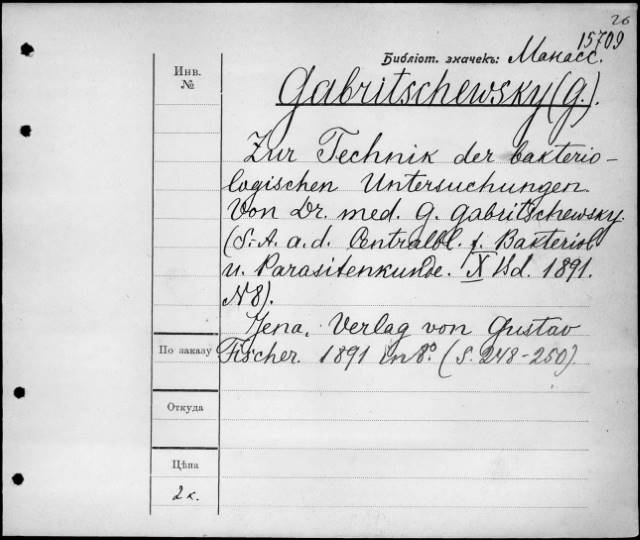 26
15709
Библіот. значекъ: Макасс.
Инв.
№
Gabritschewsky (G.).
Zur Technik der bakterio-
logischen Untersuchungen.
Von Dr. med. G. Gabritschewsky.
(S. A. a. d. Centralbl. f. Bakteriol.
u. Parasitenkunde. X Bd. 1891.
N 8).
Jena, Verlag von Gustav
По заказу
Fischer. 1891 in 8°. (S. 248-250).
Откуда
Цѣна
2 к.